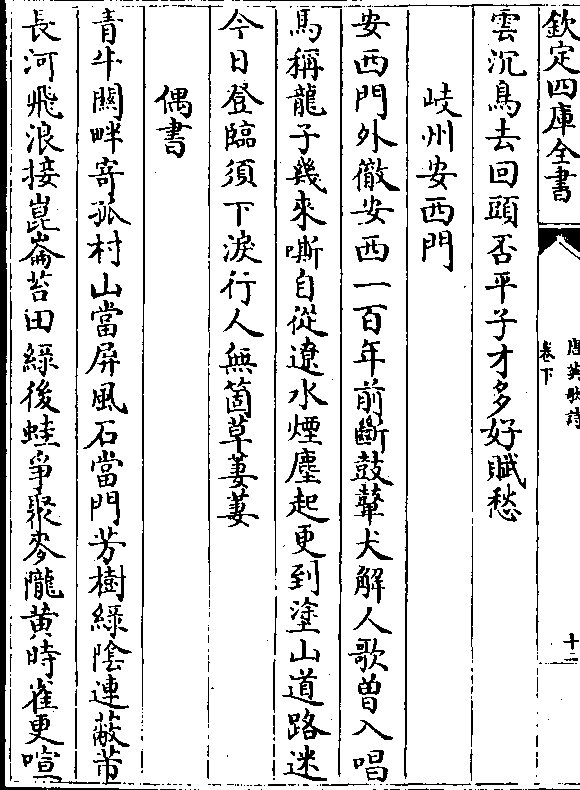 欽定四庫全書
唐英歌詩
卷下
十二
雲沉鳥去回頭否平子才多好賦愁
岐州安西門
安西門外徹安西一百年前斷鼓鼙犬解人歌曽入唱
馬稱龍子幾來嘶自從遼水煙塵起更到塗山道路迷
今日登臨須下淚行人無箇草萋萋
偶書
青牛闗畔寄孤村山當屏風石當門芳樹綠陰連蔽芾
長河飛浪接崑崙苔田綠後蛙爭聚麥隴黃時雀更喧